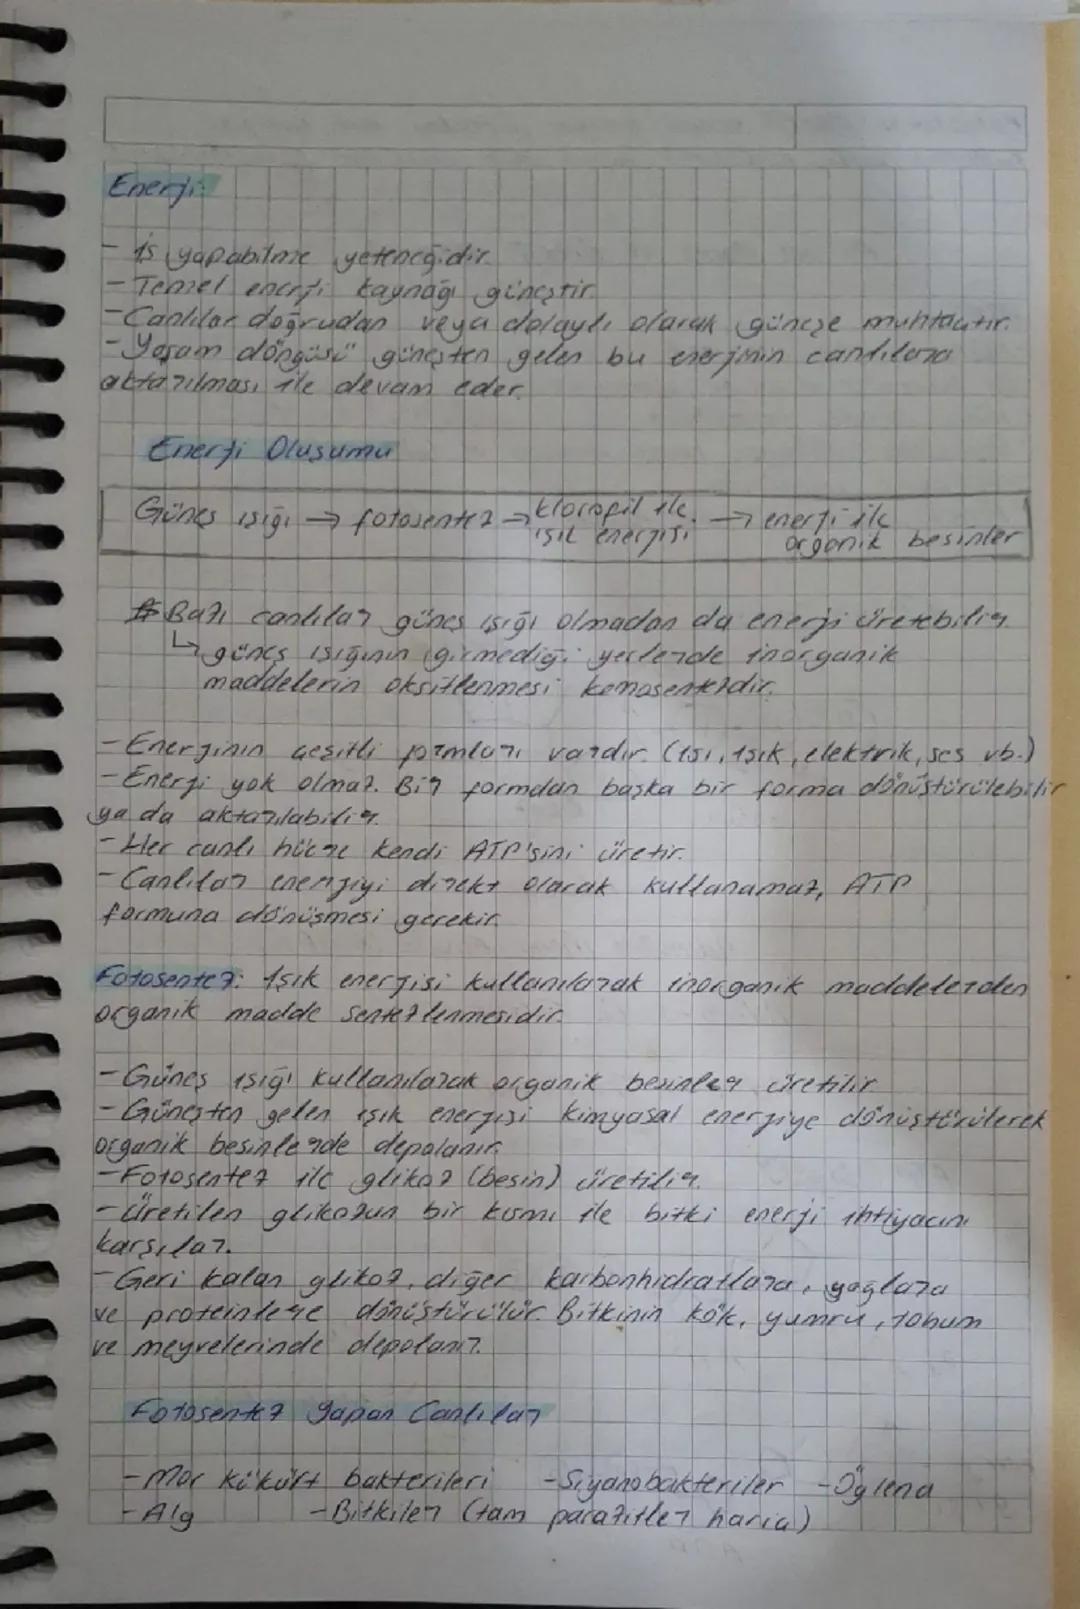 Enerji:
- İş yapabilme yeteneğidir.
- Temel enerji kaynağı güneştir.
- Canlılar doğrudan veya dolaylı olarak güneşe muhtaçtır.
- Yaşam döngüsü güneşten gelen bu enerjinin canlılara
aktarılması ile devam eder.
Enerji Oluşumu
Güneş ışığı → fotosentez → klorofil ile ışık enerjisi → enerji ile organik besinler
Bazı canlılar güneş ışığı olmadan da enerji üretebilir
↳ güneş ışığının girmediği yerlerde inorganik
maddelerin oksitlenmesi kemosentezdir.
- Enerjinin çeşitli formları vardır. (ısı, ışık, elektrik, ses vb.)
- Enerji yok olmaz. Bir formdan başka bir forma dönüştürülebilir
ya da aktarılabilir.
- Her canlı hücre kendi ATP'sini üretir.
- Canlılar enerjiyi direkt olarak kullanamaz, ATP
formuna dönüşmesi gerekir.
Fotosentez: Işık enerjisi kullanılarak inorganik maddelerden
organik madde sentezlenmesidir.
- Güneş ışığı kullanılarak organik besinler üretilir
- Güneşten gelen ışık enerjisi kimyasal enerjiye dönüştürülerek
organik besinlerde depolanır.
- Fotosentez ile glikoz (besin) üretilir.
- Üretilen glikozun bir kısmı ile bitki enerji ihtiyacını
karşılar.
- Geri kalan glikoz, diğer karbonhidratlara, yağlara
ve proteinlere dönüştürülür. Bitkinin kök, yumru, tohum
ve meyvelerinde depolanır.
Fotosentez Yapan Canlılar
- Mor kükürt bakterileri - Siyanobakteriler - Öglena
- Alg - Bitkiler (tam parazitler hariç)